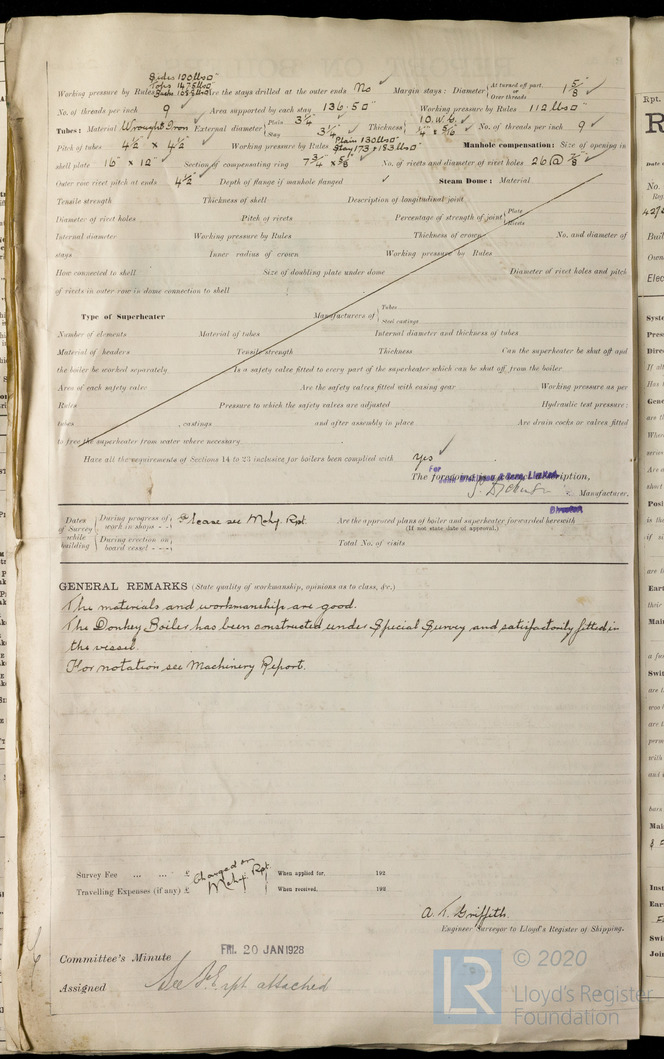 Sides 120 lbs □"
Tops 147.5 lbs □"
Working pressure by Rules Are the stays drilled at the outer ends No Margin stays: Diameter At turned off part, or Over threads 1 5/8"
No. of threads per inch 9 Area supported by each stay 136.50 □" Working pressure by Rules 112 lbs □"
Tubes: Material Wrought Iron External diameter Plain 3 1/4" Stay 3 1/4" Thickness 10 W.G. 1/4" & 5/16" No. of threads per inch 9
Pitch of tubes 4 1/2" x 4 1/2" Working pressure by Rules Plain 130 lbs □" Stay 173 & 183 lbs □" Manhole compensation: Size of opening in
shell plate 16" x 12" Section of compensating ring 7 3/4" x 5/8" No. of rivets and diameter of rivet holes 26 @ 7/8"
Outer row rivet pitch at ends 4 1/2" Depth of flange if manhole flanged Steam Dome: Material
Tensile strength Thickness of shell Description of longitudinal joint
Diameter of rivet holes Pitch of rivets Percentage of strength of joint Plate Rivets
Internal diameter Working pressure by Rules Thickness of crown No. and diameter of
stays Inner radius of crown Working pressure by Rules
How connected to shell Size of doubling plate under dome Diameter of rivet holes and pitch
of rivets in outer row in dome connection to shell
Type of Superheater Manufacturers of Tubes Steel castings
Number of elements Material of tubes Internal diameter and thickness of tubes
Material of headers Tensile strength Thickness Can the superheater be shut off and
the boiler be worked separately Is a safety valve fitted to every part of the superheater which can be shut off from the boiler
Area of each safety valve Are the safety valves fitted with easing gear Working pressure as per
Rules Pressure to which the safety valves are adjusted Hydraulic test pressure:
tubes , castings and after assembly in place Are drain cocks or valves fitted
to free the superheater from water where necessary
Have all the requirements of Sections 14 to 23 inclusive for boilers been complied with yes
For
The foregoing is a correct description,
Manufacturer.
Director
Dates of Survey while building During progress of work in shops - - Please see Mchy. Rpt. Are the approved plans of boiler and superheater forwarded herewith
(If not state date of approval.)
During erection on board vessel - - - Total No. of visits
GENERAL REMARKS (State quality of workmanship, opinions as to class, &c.)
The materials and workmanship are good.
The Donkey Boiler has been constructed under Special Survey and satisfactorily fitted in
the vessel.
For notation see Machinery Report.
Survey Fee ... ... £ Charged on Mchy. Rpt. When applied for, 192
Travelling Expenses (if any) £ When received, 192
A. T. Griffith.
Engineer Surveyor to Lloyd's Register of Shipping.
Committee's Minute FRI. 20 JAN 1928
Assigned See F.E. rpt attached
© 2020
Lloyd's Register
Foundation
LR
Rpt.